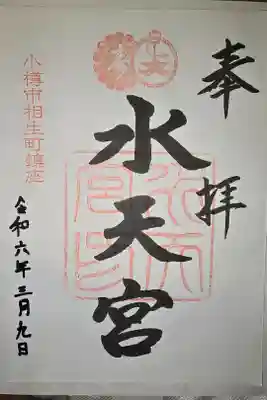 奉拝
水天宮
小樽市相生町鎮座
令和六年三月九日